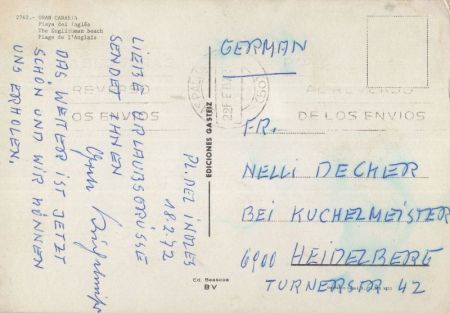 2762.- GRAN CANARIA
Playa del Inglés
The Englishman beach
Plage de l'Anglais
PL. DEL INGLES
18.2.72
LIEBE URLAUBSGRÜSSE
SENDET IHNEN
DAS WETTER IST JETZT
SCHÖN UND WIR KÖNNEN
UNS ERHOLEN.
EDICIONES GASTEIZ
Ed. Beascoa
BV
GERMAN
REVERSO
DE LOS ENVIOS
AL REVERSO
DE LOS ENVIOS
FR.
NELLI DECHER
BEI KUCHELMEISTER
6900 HEIDELBERG
TURNERSTR 42